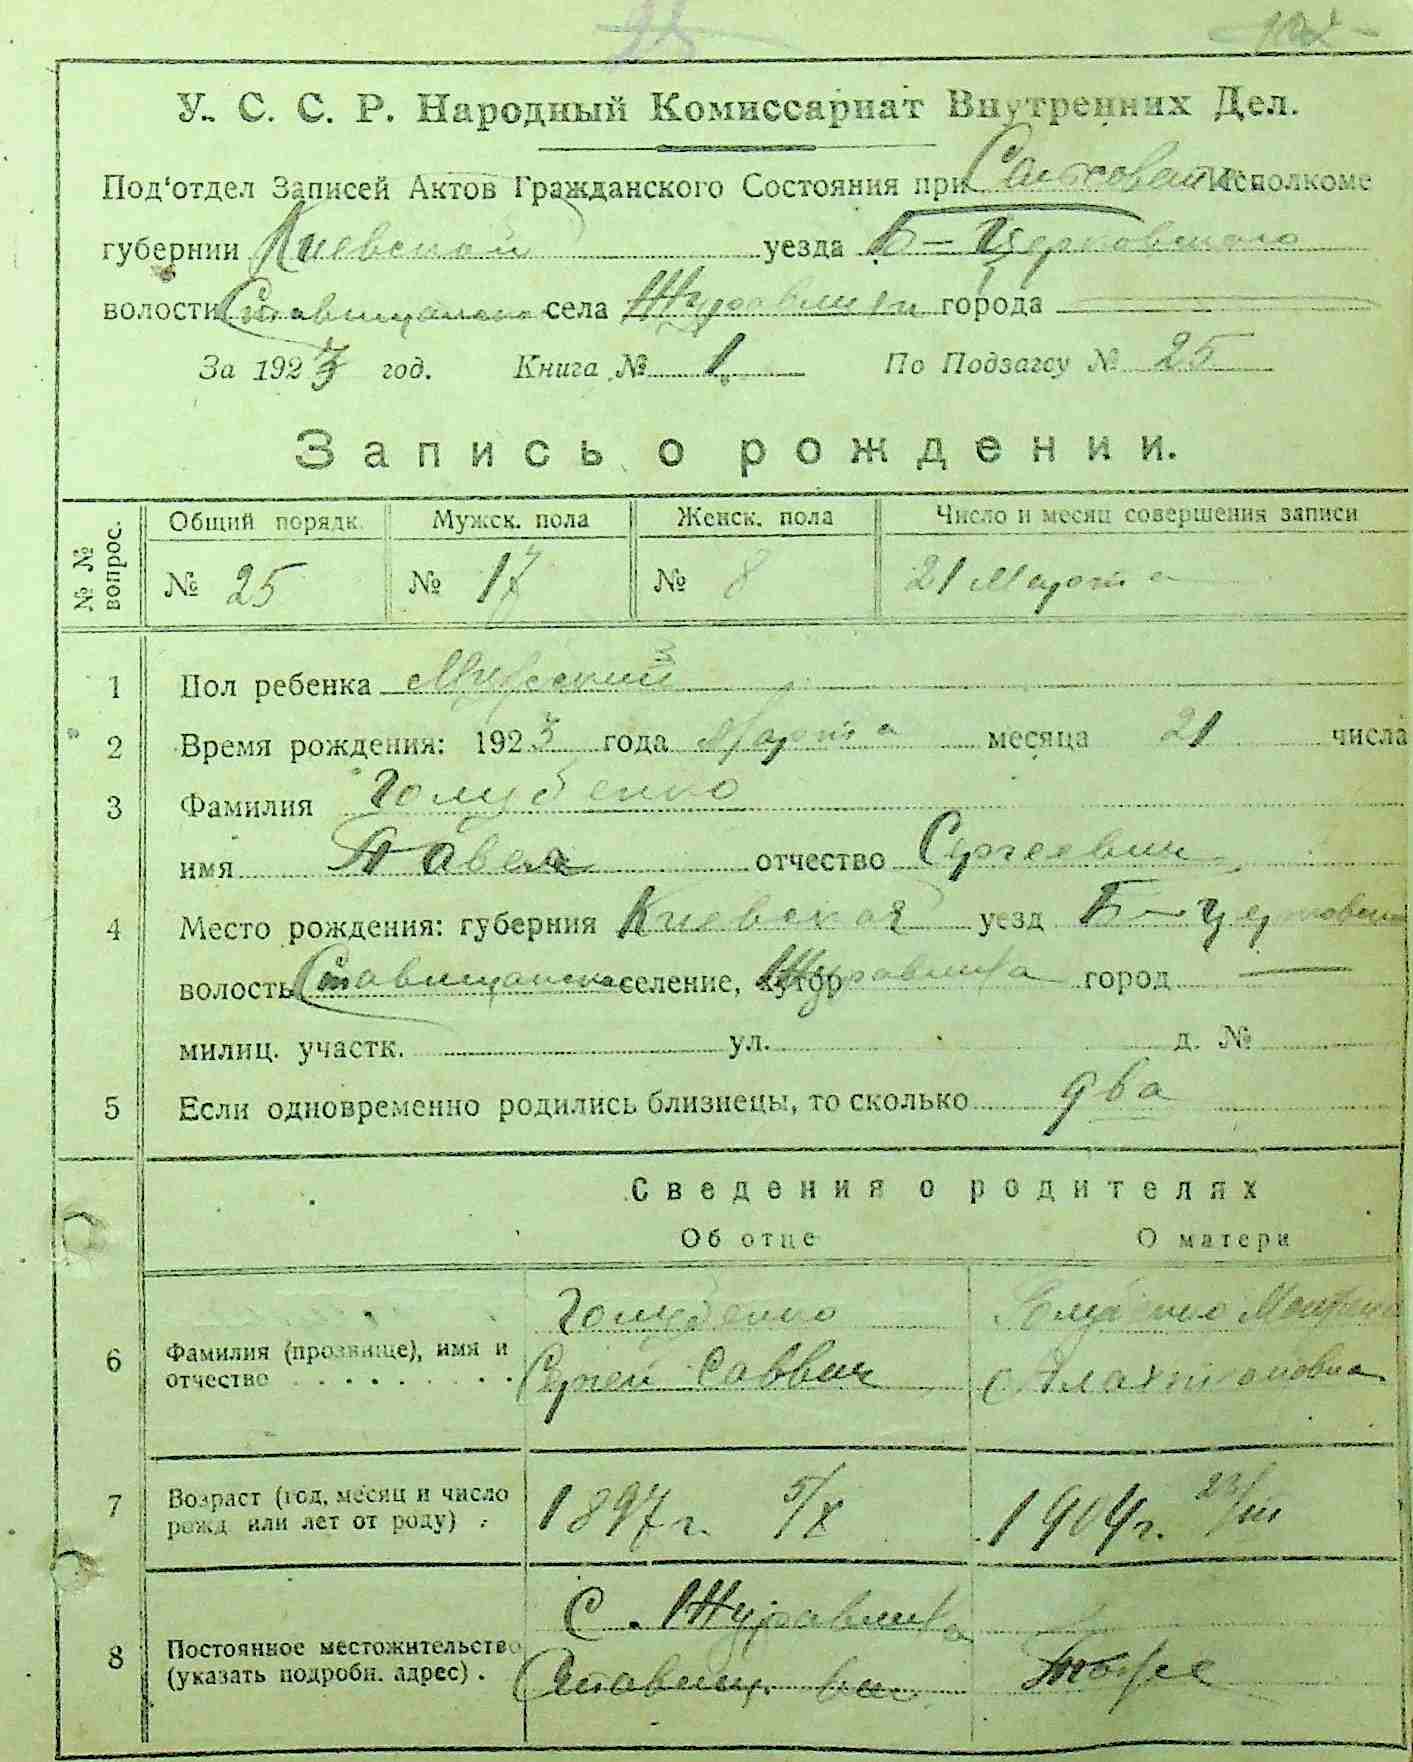 У. С. С. Р. Народный Комиссариат Внутренних Дел.
Под‘отдел Записей Актов Гражданского Состояния при Исполкоме
губернии Киевской уезда Б–Церковского
волости села города
За 1923 год. Книга № 1. По Подзагсу № 25
Запись о рождении.
№ № вопрос. Общий порядк. Мужск. пола Женск. пола Число и месяц совершения записи
№ 25 № 17 № 8 21 Марта
1 Пол ребенка Мужеский
2 Время рождения: 1923 года Марта месяца 21 числа
3 Фамилия Голубенко
имя Павел отчество Сергеевич
4 Место рождения: губерния Киевская уезд
волость селение, хутор город —
милиц. участк. ул. д. №
5 Если одновременно родились близнецы, то сколько два
Сведения о родителях
Об отце О матери
Голубенко Голубенко
6 Фамилия (прозвище), имя и отчество Сергей Саввич
7 Возраст (год, месяц и число рожд или лет от роду) 1897 г. 5/X 1904 г. 23/III
С.
8 Постоянное местожительство (указать подробн. адрес) . Ставищ. вол